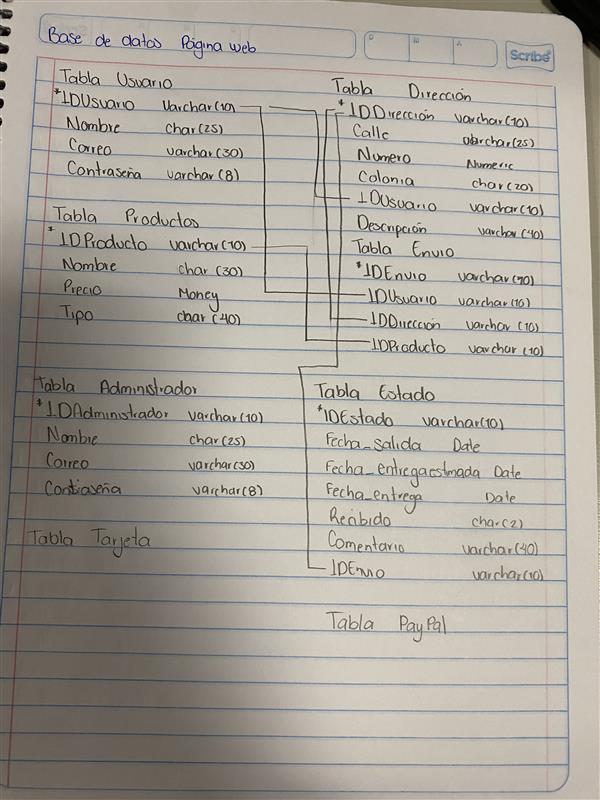 Base de datos Página web
D M A
Scribe
Tabla Usuario
*IDUsuario Varchar(10)
Nombre char(25)
Correo varchar(30)
Contraseña varchar(8)
Tabla Productos
*IDProducto varchar(10)
Nombre char(30)
Precio Money
Tipo char(40)
Tabla Administrador
*IDAdministrador varchar(10)
Nombre char(25)
Correo varchar(30)
Contraseña varchar(8)
Tabla Tarjeta
Tabla Dirección
*IDDirección varchar(10)
Calle varchar(25)
Numero Numeric
Colonia char(20)
IDUsuario varchar(10)
Descripción varchar(40)
Tabla Envio
*IDEnvio varchar(10)
IDUsuario varchar(10)
IDDirección varchar(10)
IDProducto varchar(10)
Tabla Estado
*IDEstado varchar(10)
Fecha_salida Date
Fecha_entregaestimada Date
Fecha_entrega Date
Recibido char(2)
Comentario varchar(40)
IDEnvio varchar(10)
Tabla PayPal